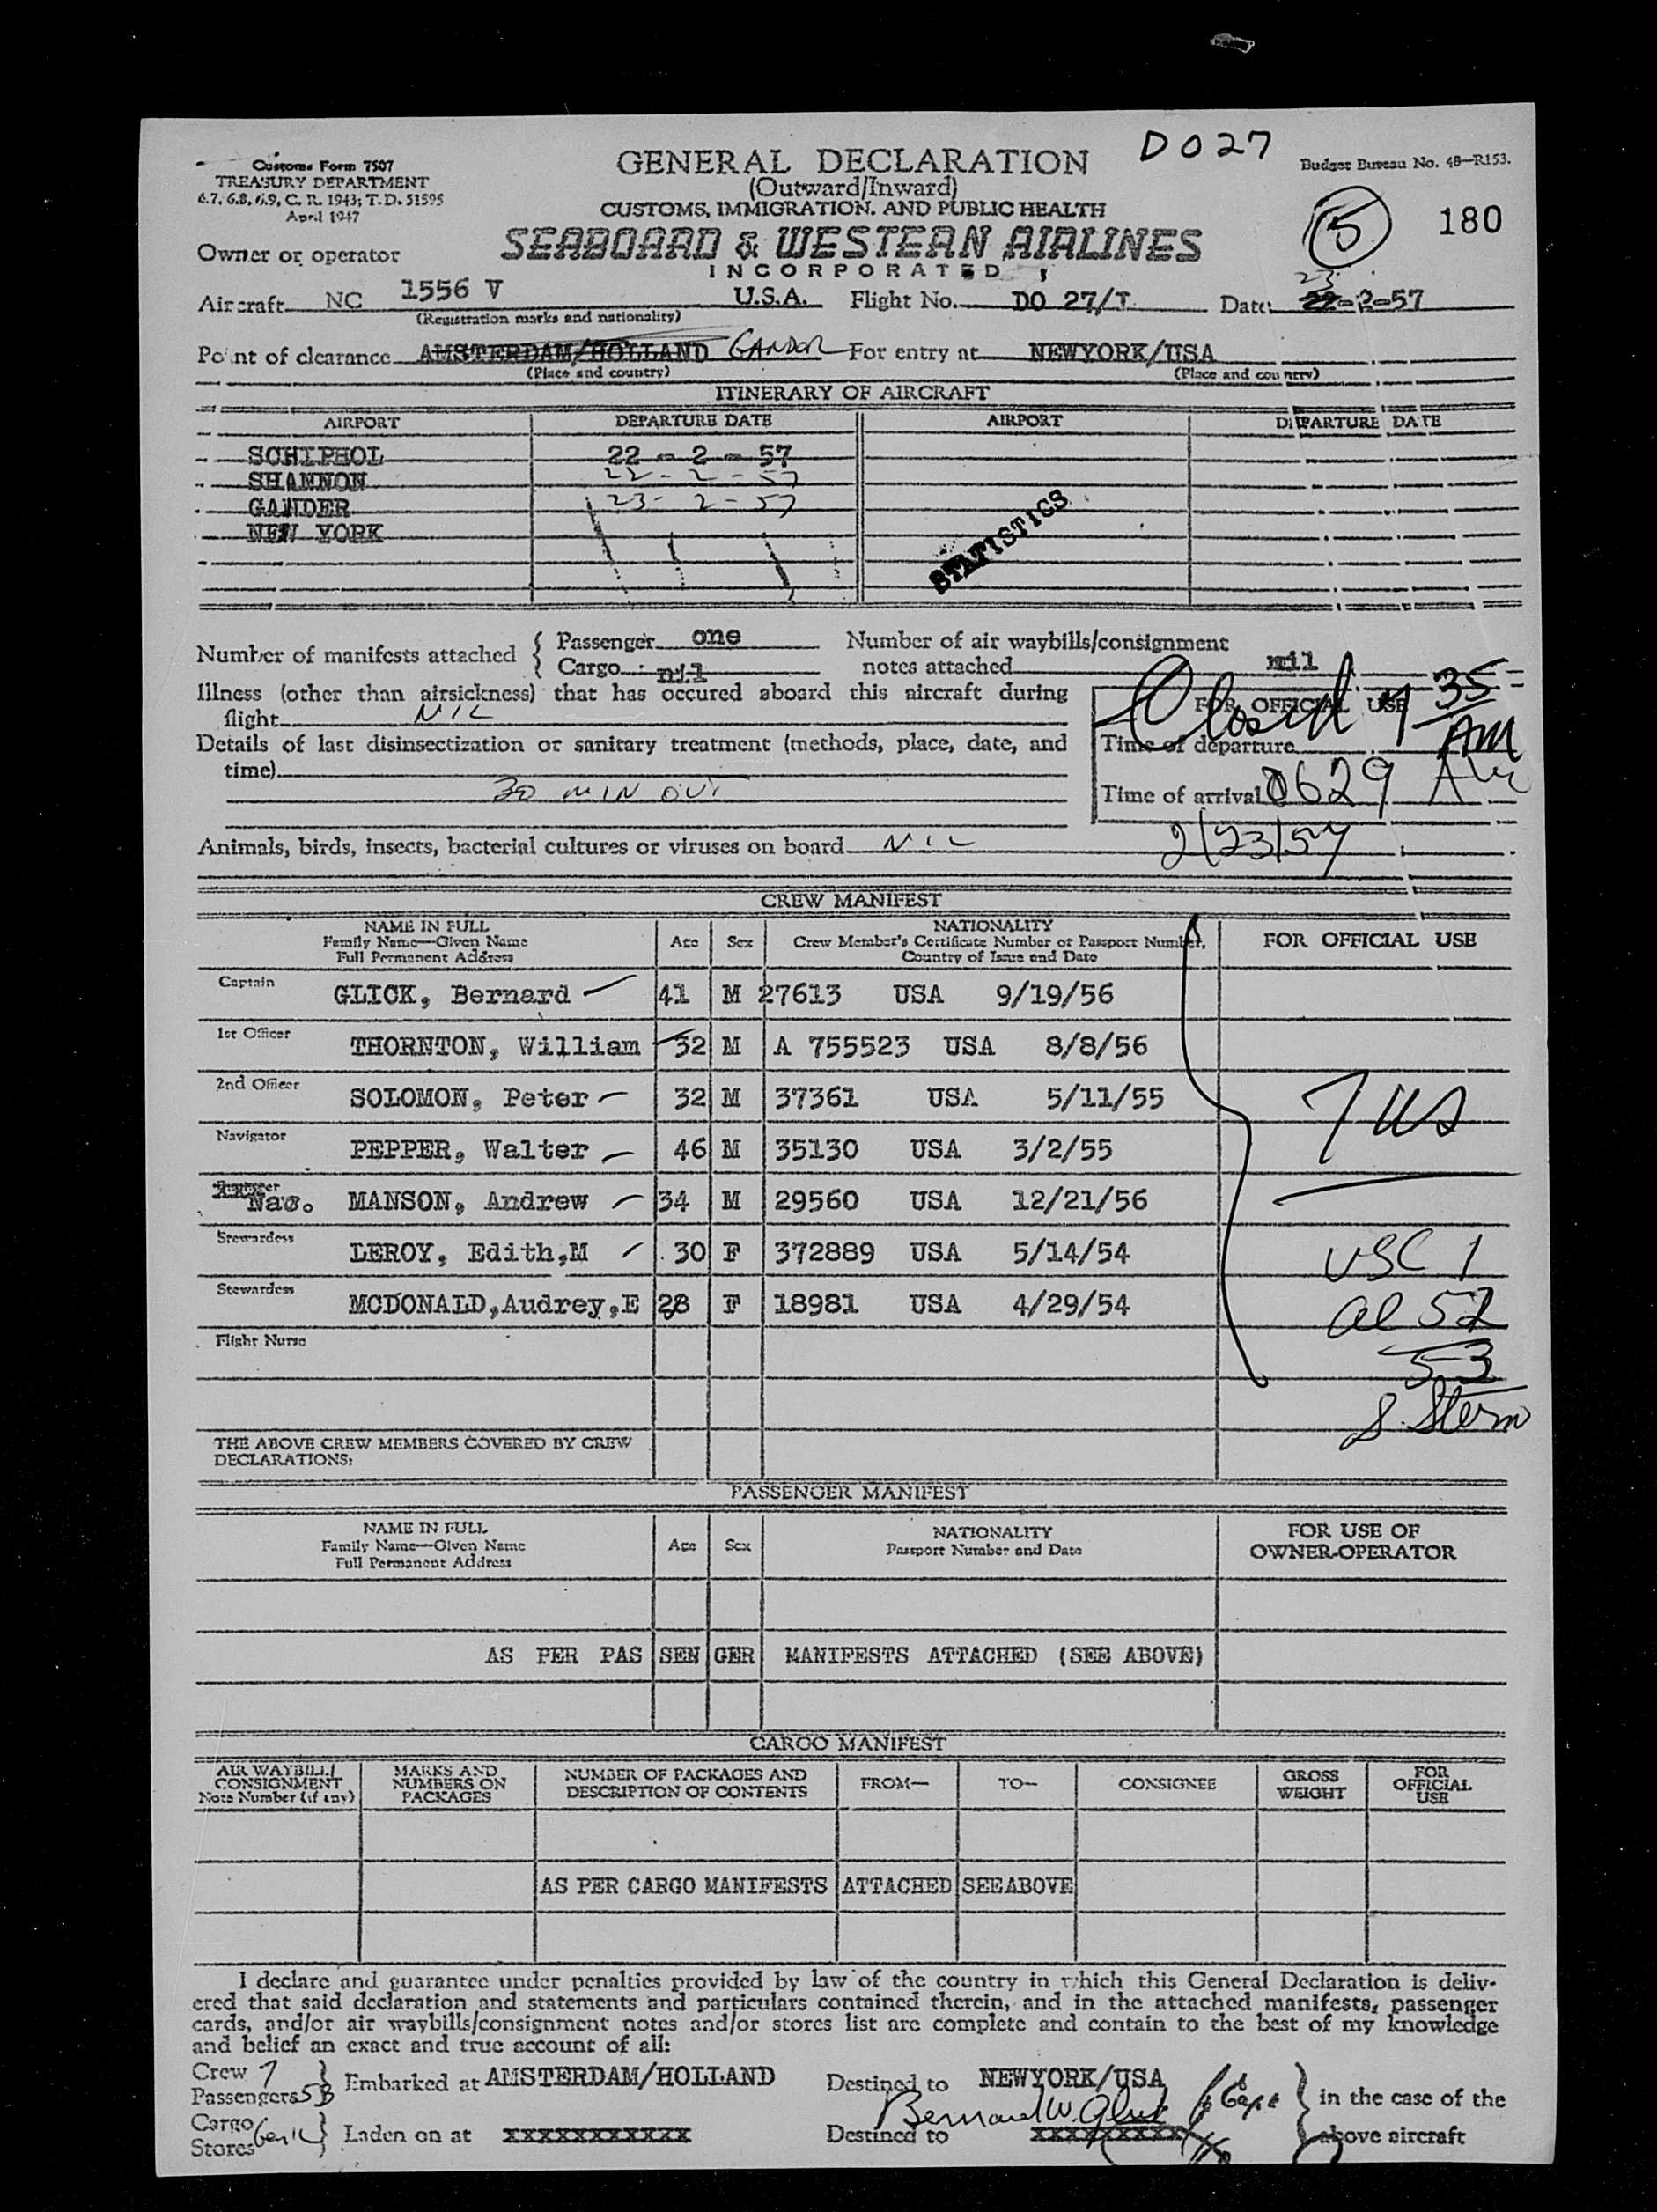 D027
Customs Form 7507
TREASURY DEPARTMENT
6.7, 6.8, 6.9, C. R. 1943; T. D. 51595
April 1947
GENERAL DECLARATION
(Outward/Inward)
CUSTOMS, IMMIGRATION, AND PUBLIC HEALTH
Budget Bureau No. 48—R153.
5 180
Owner or operator SEABOARD & WESTERN AIRLINES
INCORPORATED
23
Aircraft NC 1556 V U.S.A. Flight No. DO 27/T Date: 22-2-57
(Registration marks and nationality)
Point of clearance AMSTERDAM/HOLLAND GANDOR For entry at NEWYORK/USA
(Place and country) (Place and country)
ITINERARY OF AIRCRAFT
AIRPORT DEPARTURE DATE AIRPORT DEPARTURE DATE
SCHIPHOL 22 - 2 - 57
SHANNON 22 - 2 - 57
GANDER 23 - 2 - 57
NEW YORK
STATISTICS
Number of manifests attached { Passenger one Number of air waybills/consignment
Cargo nil notes attached nil
Illness (other than airsickness) that has occured aboard this aircraft during
flight NIL
Closed 7 35 AM
FOR OFFICIAL USE
Details of last disinsectization or sanitary treatment (methods, place, date, and
time)
30 MIN OUT
Time of departure
Time of arrival 0629 AM
2/23/57
Animals, birds, insects, bacterial cultures or viruses on board NIL
CREW MANIFEST
NAME IN FULL
Family Name—Given Name
Full Permanent Address
Age Sex
NATIONALITY
Crew Member's Certificate Number or Passport Number,
Country of Issue and Date
FOR OFFICIAL USE
Captain GLICK, Bernard 41 M 27613 USA 9/19/56
1st Officer THORNTON, William 32 M A 755523 USA 8/8/56
2nd Officer SOLOMON, Peter 32 M 37361 USA 5/11/55
7 US
Navigator PEPPER, Walter 46 M 35130 USA 3/2/55
Nav. MANSON, Andrew 34 M 29560 USA 12/21/56
Stewardess LEROY, Edith,M 30 F 372889 USA 5/14/54
USC 1
Stewardess MCDONALD,Audrey,E 28 F 18981 USA 4/29/54
al 52
Flight Nurse
53
S. Stern
THE ABOVE CREW MEMBERS COVERED BY CREW
DECLARATIONS:
PASSENGER MANIFEST
NAME IN FULL
Family Name—Given Name
Full Permanent Address
Age Sex
NATIONALITY
Passport Number and Date
FOR USE OF
OWNER-OPERATOR
AS PER PAS SEN GER MANIFESTS ATTACHED (SEE ABOVE)
CARGO MANIFEST
AIR WAYBILL/
CONSIGNMENT
Note Number (if any)
MARKS AND
NUMBERS ON
PACKAGES
NUMBER OF PACKAGES AND
DESCRIPTION OF CONTENTS
FROM— TO— CONSIGNEE
GROSS
WEIGHT
FOR
OFFICIAL
USE
AS PER CARGO MANIFESTS ATTACHED SEEABOVE
I declare and guarantee under penalties provided by law of the country in which this General Declaration is deliv-
ered that said declaration and statements and particulars contained therein, and in the attached manifests, passenger
cards, and/or air waybills/consignment notes and/or stores list are complete and contain to the best of my knowledge
and belief an exact and true account of all:
Crew 7
Passengers 53 } Embarked at AMSTERDAM/HOLLAND Destined to NEWYORK/USA } in the case of the
Bernard W. Glick
Cargo
Stores } Laden on at XXXXXXXXXXX Destined to XXXXXXXXX above aircraft